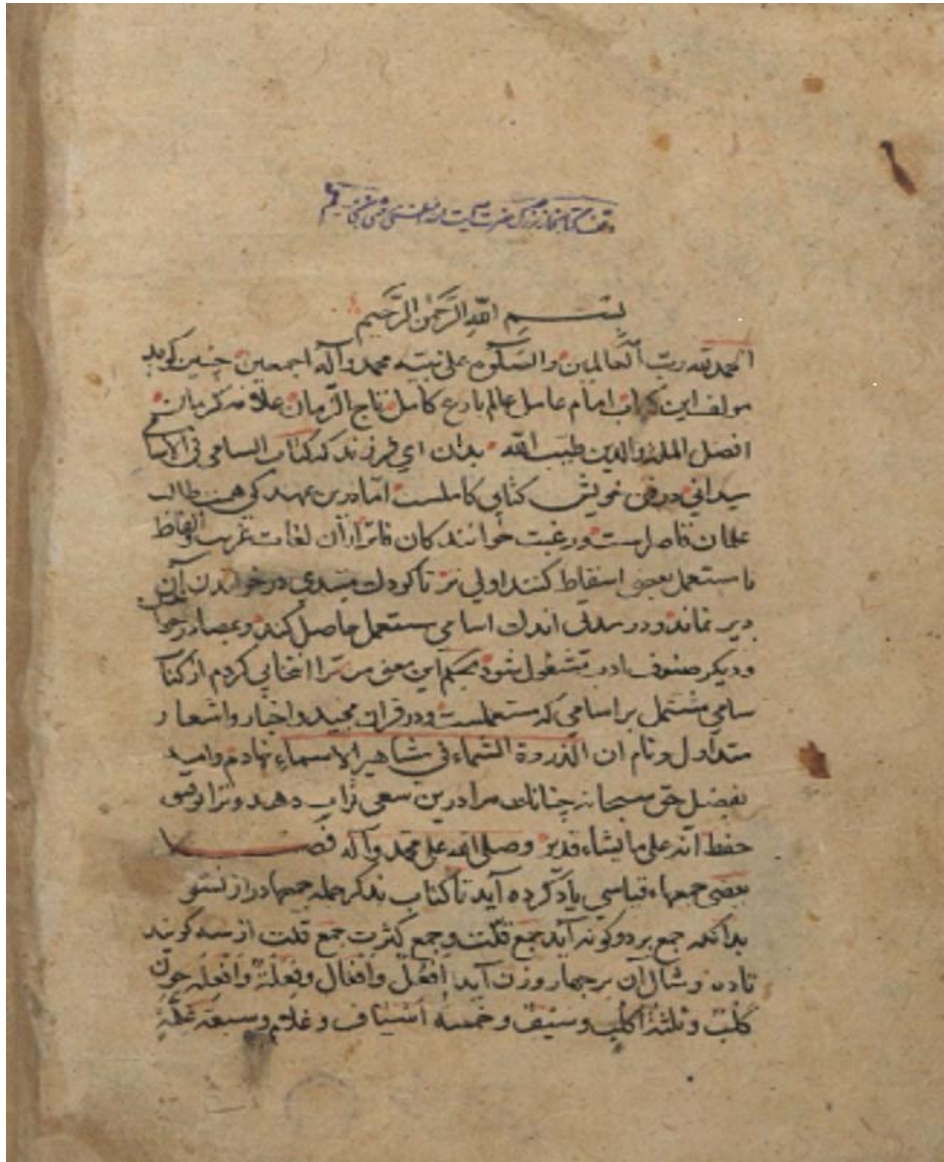 وقف کتابخانه بزرگ حضرت آیت الله مرعشی نجفی قم
بسم الله الرحمن الرحیم
الحمد لله رب العالمین والسلوم علی نبیه محمد وآله اجمعین چنین کوید
مولف این کتاب امام عامل عالم بارع کامل تاج الزمان علامه کرمان
افضل الملة والدین طیب الله بدان ای فرزند که کتاب السامی فی الاسا
میدانی در فن خویش کتابی کاملست اما درین عهد کی همت طالب
علمان قاصرست ورغبت خوانندکان فاتر از آن لغات غریب والفاظ
نا مستعمل بعضی اسقاط کنند اولی تر تا کودک مبتدی در خواندن آن
دیر نماند ودر مدتی اندک اسامی مستعمل حاصل کند وبمصادر
ودیکر صنوف ادب مشغول شود بحکم این معنی مر ترا انتخابی کردم از کتاب
سامی مشتمل بر اسامی که مستعملست ودر قران مجید واخبار واشعار
متداول ونام ان الذروة الشماء فی مشاهیر الاسماء نهادم وامید
بفضل حق سبحانه چنانک مرا درین سعی ثواب دهد وترا توفیق
حفظ انه علی ما یشاء قدیر وصلی الله علی محمد وآله فصل
بعضی جمعهاء قیاسی یاد کرده آید تا کتاب بذکر جمله جمعها دراز نشو
بدانکه جمع بر دو کونه آید جمع قلت وجمع کثرت جمع قلت از سه کویند
تا ده ومثال آن بر چهار وزن آید افعل وافعال وفعلة وافعله چون
کلب وثلثة اکلب وسیف وخمسة اسیاف وغلام وسبعة غلمة